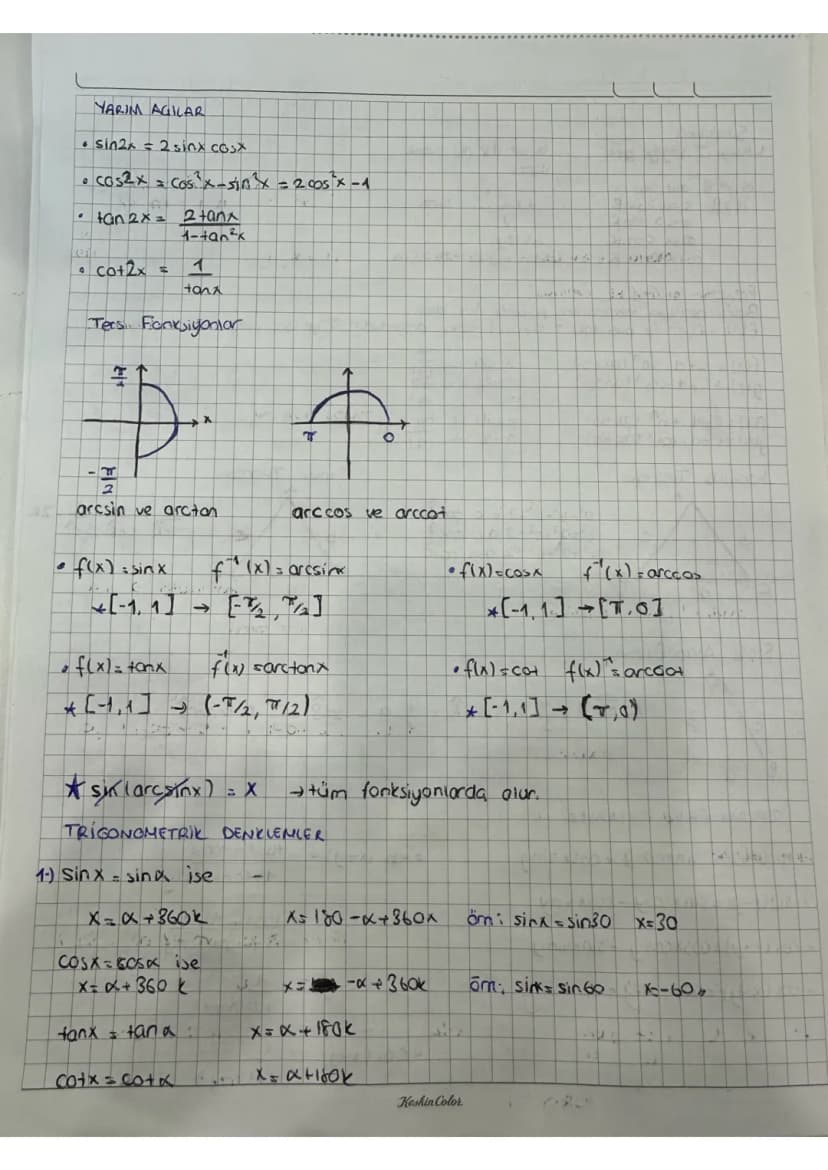 YARIM AÇILAR
• sin2x = 2sinx cosx
• cos2x = cos²x - sin²x = 2cos²x - 1
• tan2x = 2tanx / 1-tan²x
• cot2x = 1 / tanx
Ters Fonksiyonlar
π/2
x π 0
-π/2
arcsin ve arctan arccos ve arccot
• f(x) = sinx f⁻¹(x) = arcsinx • f(x) = cosx f⁻¹(x) = arccos
*[-1, 1] → [-π/2, π/2] *[-1, 1] → [π, 0]
• f(x) = tanx f⁻¹(x) = arctanx • f(x) = cot f(x)⁻¹ = arccot
* [-1, 1] → (-π/2, π/2) * [-1, 1] → (π, 0)
★ sin(arcsinx) = x → tüm fonksiyonlarda olur.
TRİGONOMETRİK DENKLEMLER
1-) sinx = sinα ise -
x = α + 360k x = 180 - α + 360k örn: sinx = sin30 x = 30
cosx = cosα ise
x = α + 360 k x = -α + 360k örn: sinx = sin60 x = -60
tanx = tanα x = α + 180k
cotx = cotα x = α + 180k
KeskinColor